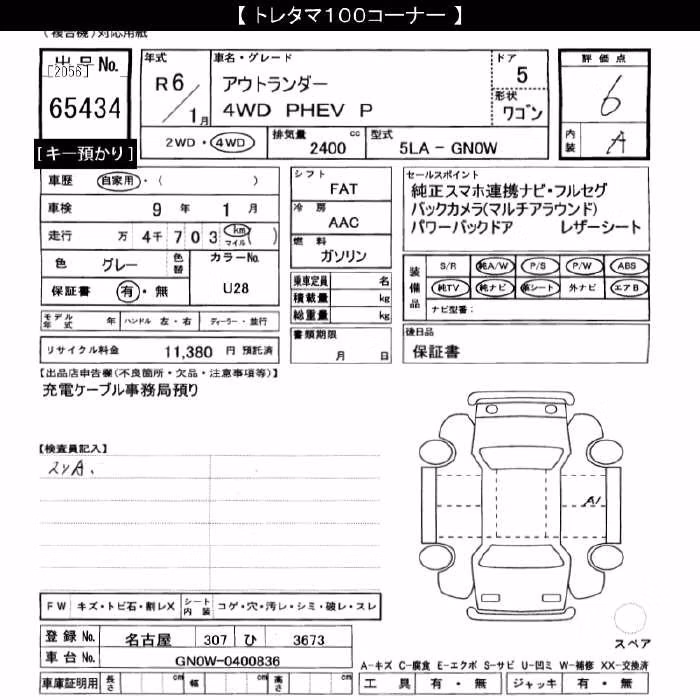 【 トレタマ100コーナー 】
(複合機)対応用紙
出品No.
[2056]
65434
[キー預かり]
年式
R6/1月
車名・グレード
アウトランダー
4WD PHEV P
ドア
5
形状
ワゴン
2WD・4WD
排気量 2400 cc
型式 5LA-GN0W
評価点
6
内装
A
車歴 自家用・( )
車検 9年 1月
走行 万 4千 703 km マイル ( )
色 グレー 色替
カラーNo. U28
保証書 有・無
モデル年式 年 ハンドル 左・右 ディーラー・並行
リサイクル料金 11,380 円 預託済
シフト
FAT
冷房
AAC
燃料
ガソリン
乗車定員 名
積載量 kg
総重量 kg
書類期限
月 日
セールスポイント
純正スマホ連携ナビ・フルセグ
バックカメラ(マルチアラウンド)
パワーバックドア レザーシート
装備品
S/R 純A/W P/S P/W ABS
純TV 純ナビ 革シート 外ナビ エアB
ナビ型番:
後日品
保証書
【出品店申告欄(不良箇所・欠品・注意事項等)】
充電ケーブル事務局預り
【検査員記入】
A1
FW キズ・トビ石・割レX
シート内装 コゲ・穴・汚レ・シミ・破レ・スレ
登録No. 名古屋 307 ひ 3673
車台No. GN0W-0400836
車庫証明用 長さ cm 幅 cm 高さ cm
スペア
A-キズ C-腐食 E-エクボ S-サビ U-凹ミ W-補修 XX-交換済
工具 有・無 ジャッキ 有・無